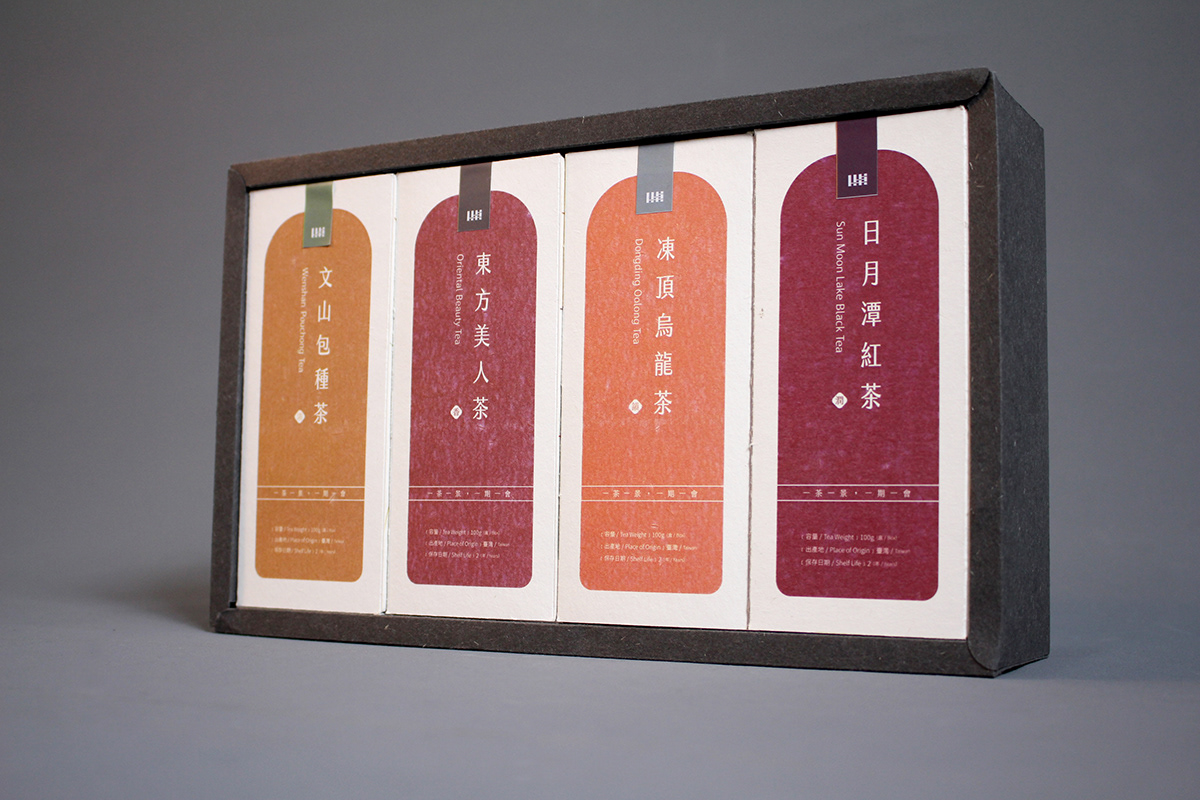 文山包種茶
Wenshan Pauchong Tea
一茶一景，一期一會
(容量 / Tea Weight) 100g
(出產地 / Place of Origin) 臺灣 / Taiwan
(保存日期 / Shelf Life) 2 (年 / Years)
東方美人茶
Oriental Beauty Tea
香
一茶一景，一期一會
(容量 / Tea Weight) 100g (盒 / Box)
(出產地 / Place of Origin) 臺灣 / Taiwan
(保存日期 / Shelf Life) 2 (年 / Years)
凍頂烏龍茶
Dongding Oolong Tea
一茶一景，一期一會
(容量 / Tea Weight) 100g (盒 / Box)
(出產地 / Place of Origin) 臺灣 / Taiwan
(保存日期 / Shelf Life) 2 (年 / Years)
日月潭紅茶
Sun Moon Lake Black Tea
潤
一茶一景，一期一會
(容量 / Tea Weight) 100g (盒 / Box)
(出產地 / Place of Origin) 臺灣 / Taiwan
(保存日期 / Shelf Life) 2 (年 / Years)